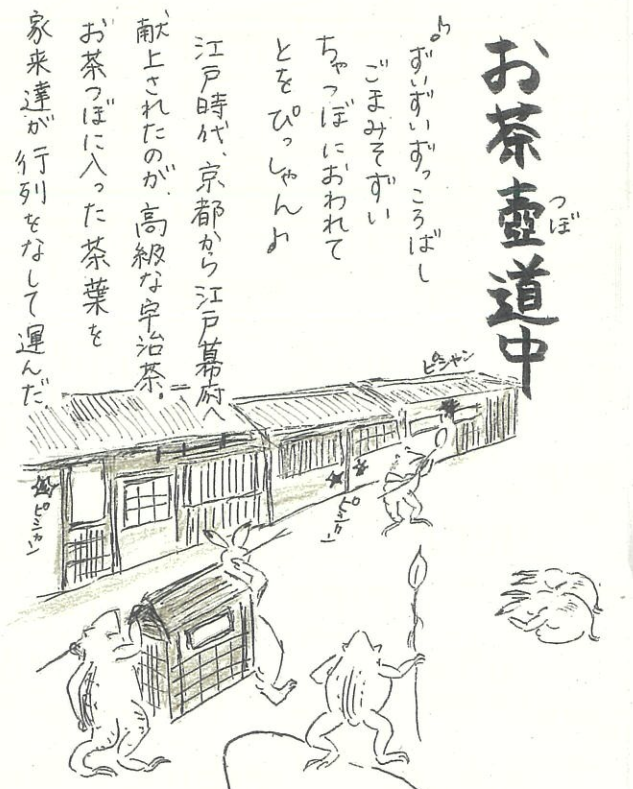 お茶壺道中
つぼ
♪ずいずいずっころばし
ごまみそずい
ちゃつぼにおわれて
とをぴっしゃん♪
江戸時代、京都から江戸幕府へ
献上されたのが、高級な宇治茶。
お茶つぼに入った茶葉を
家来達が行列をなして運んだ
ピシャン
ピシャン
ピシャン